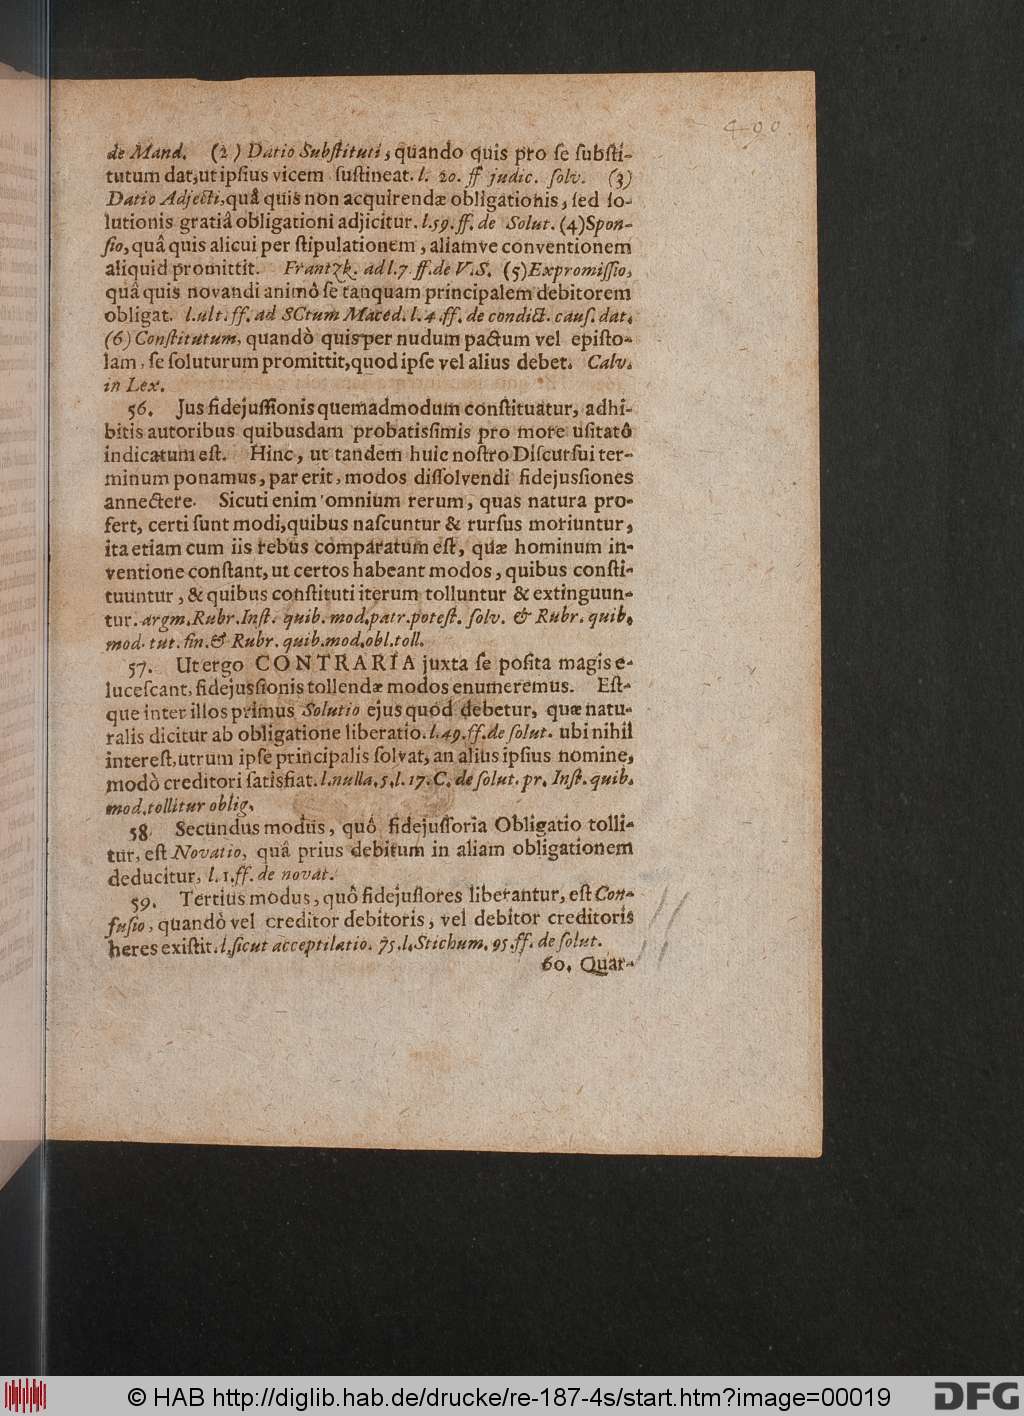 400
de Mand. (2) Datio Substituti, quando quis pro se substi-
tutum dat, ut ipsius vicem sustineat. l. 20. ff judic. solv. (3)
Datio Adjecti, quâ quis non acquirendæ obligationis, sed so-
lutionis gratiâ obligationi adjicitur. l. 59. ff. de Solut. (4) Spon-
sio, quâ quis alicui per stipulationem, aliamve conventionem
aliquid promittit. Frantzk. ad l. 7 ff. de V. S. (5) Expromissio,
quâ quis novandi animô se tanquam principalem debitorem
obligat. l. ult. ff. ad SCtum Maced. l. 4. ff. de condict. caus. dat.
(6) Constitutum, quandò quis per nudum pactum vel episto-
lam, se soluturum promittit, quod ipse vel alius debet. Calv.
in Lex.
56. Jus fidejussionis quemadmodum constituatur, adhi-
bitis autoribus quibusdam probatissimis pro more usitatô
indicatum est. Hinc, ut tandem huic nostro Discursui ter-
minum ponamus, par erit, modos dissolvendi fidejussiones
annectere. Sicuti enim omnium rerum, quas natura pro-
fert, certi sunt modi, quibus nascuntur & rursus moriuntur,
ita etiam cum iis rebus comparatum est, quæ hominum in-
ventione constant, ut certos habeant modos, quibus consti-
tuuntur, & quibus constituti iterum tolluntur & extinguun-
tur. argm. Rubr. Inst. quib. mod. patr. potest. solv. & Rubr. quib.
mod. tut. fin. & Rubr. quib. mod. obl. toll.
57. Ut ergo CONTRARIA juxta se posita magis e-
lucescant, fidejussionis tollendæ modos enumeremus. Est-
que inter illos primus Solutio ejus quod debetur, quæ natu-
ralis dicitur ab obligatione liberatio. l. 49. ff. de solut. ubi nihil
interest, utrum ipse principalis solvat, an alius ipsius nomine,
modò creditori satisfiat. l. nulla. 5. l. 17. C. de solut. pr. Inst. quib.
mod. tollitur oblig.
58 Secundus modus, quô fidejussoria Obligatio tolli-
tur, est Novatio, quâ prius debitum in aliam obligationem
deducitur, l. 1. ff. de novat.
59. Tertius modus, quô fidejussores liberantur, est Con-
fusio, quandò vel creditor debitoris, vel debitor creditoris
heres existit. l. sicut acceptilatio. 75. l. Stichum. 95. ff. de solut.
60. Quar-
© HAB http://diglib.hab.de/drucke/re-187-4s/start.htm?image=00019
DFG